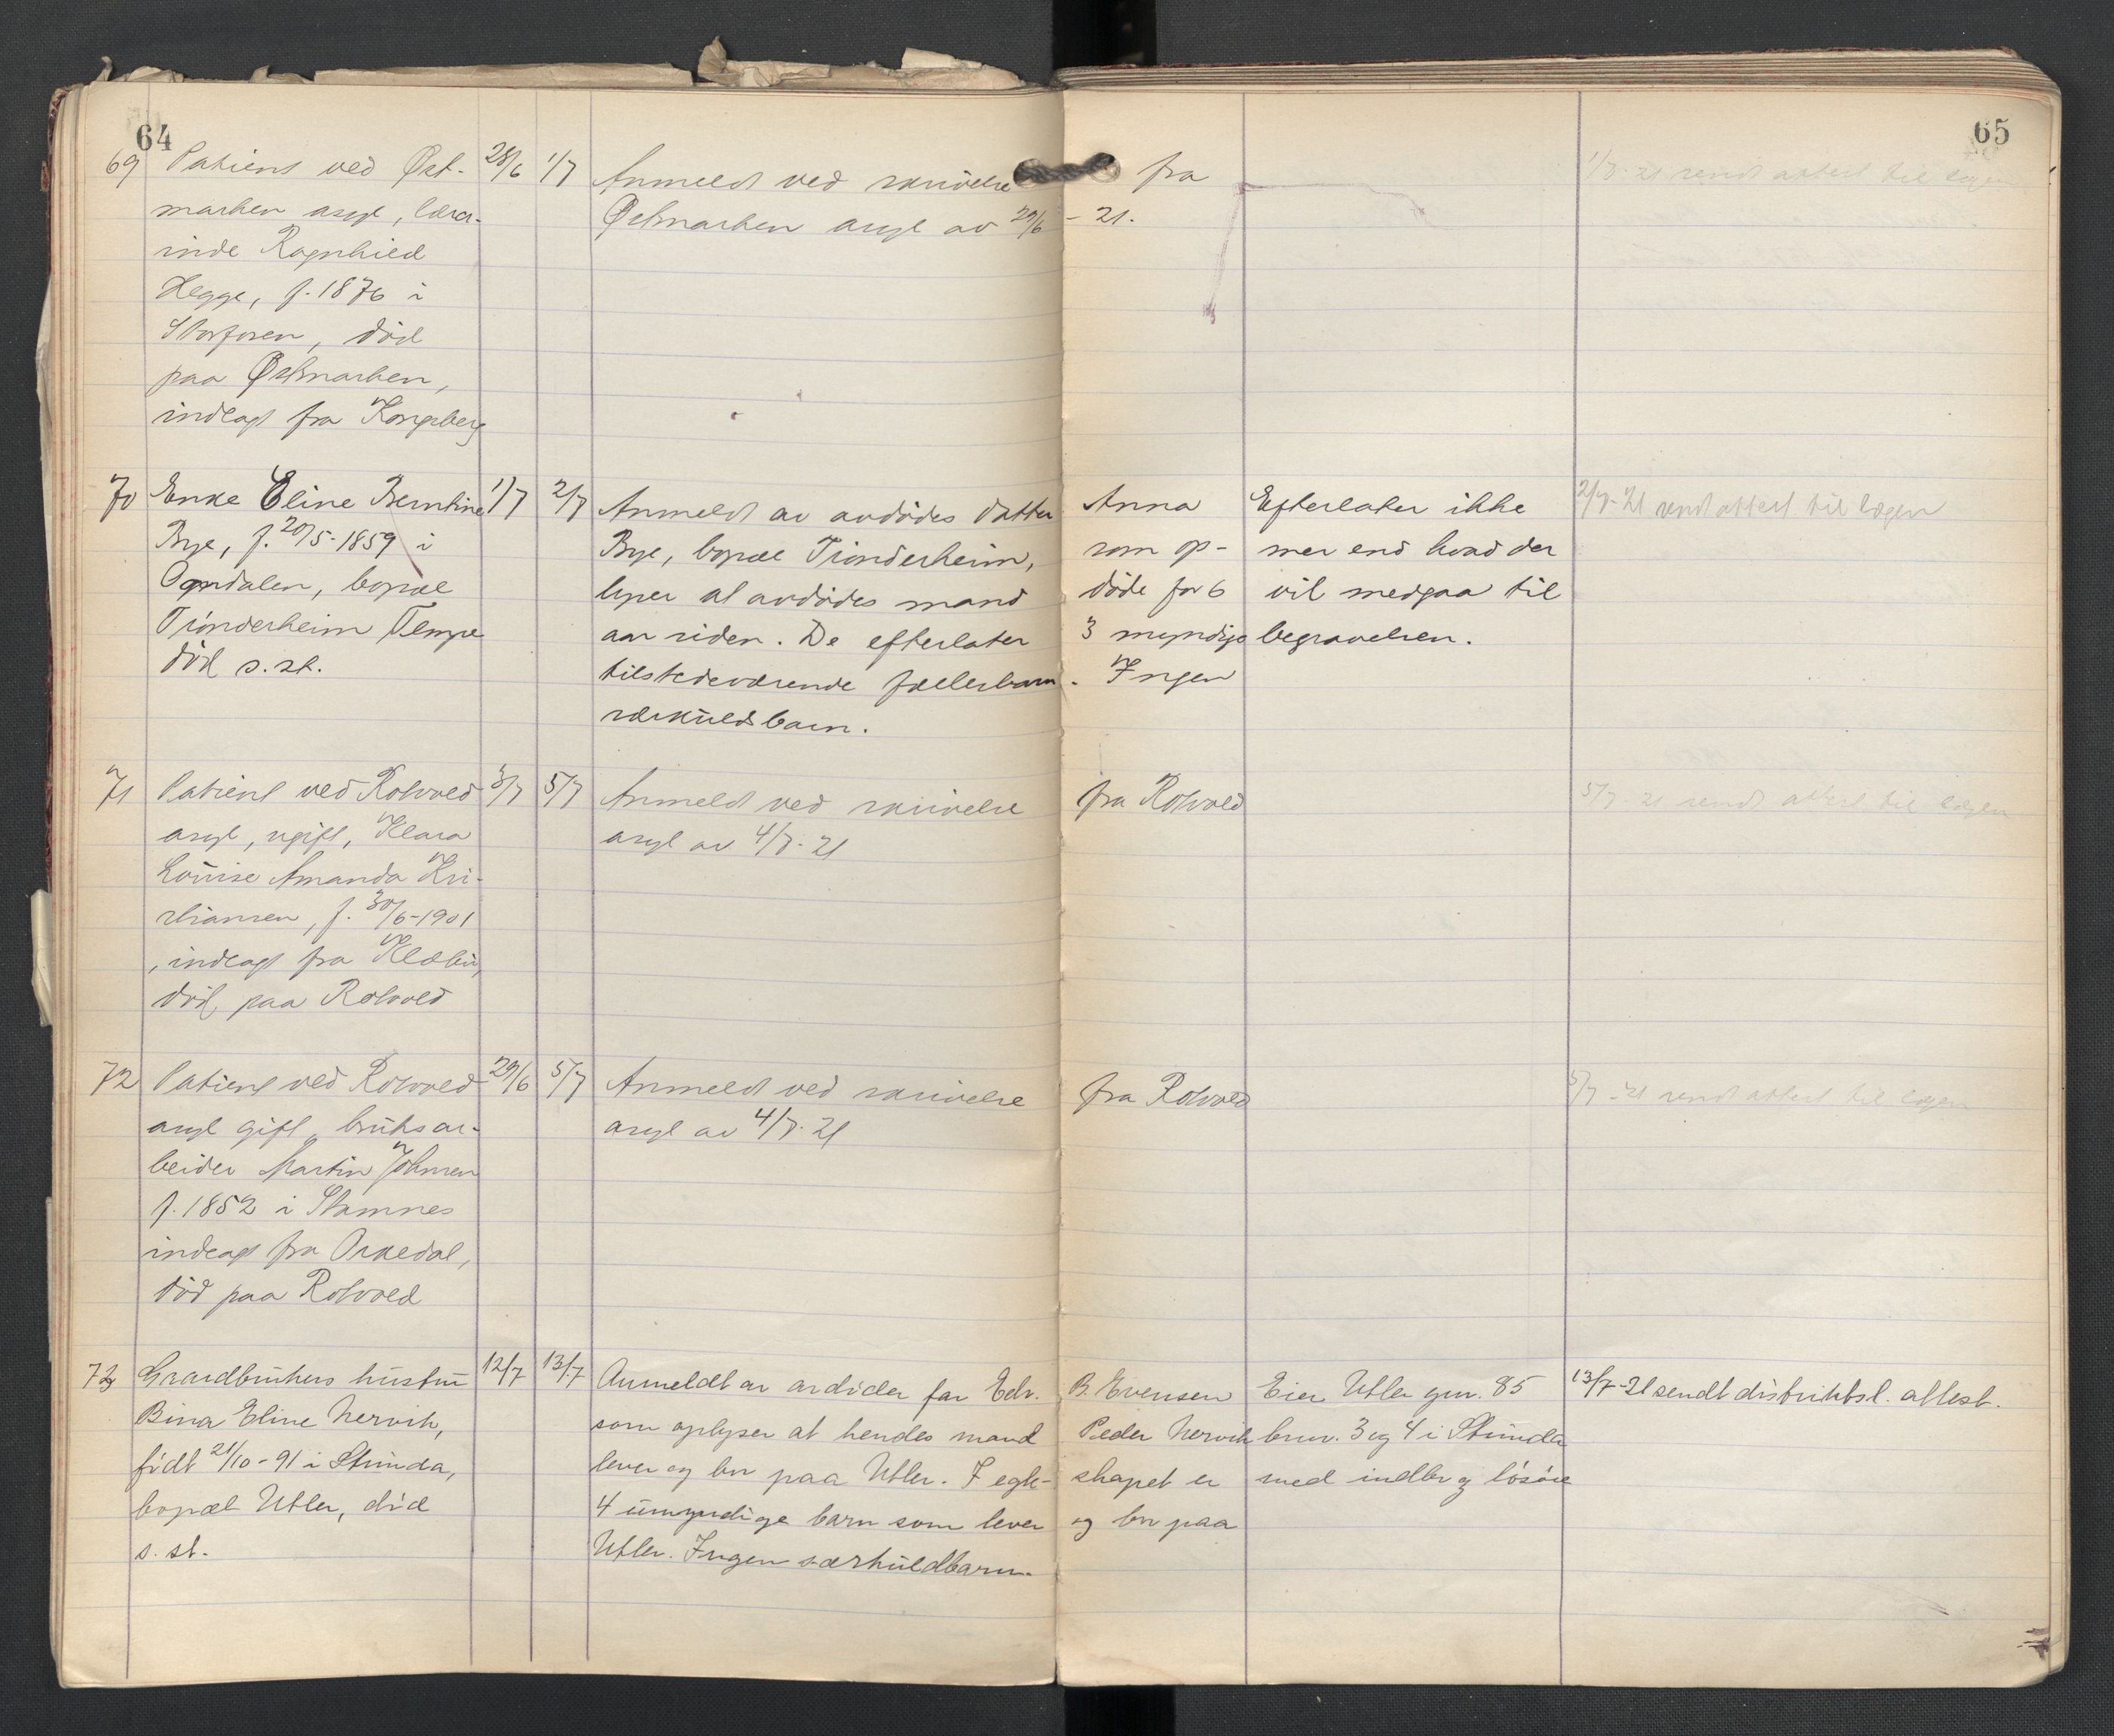 64
65
69 Patient ved Øst- 28/6 1/7 Anmeldt ved skrivelse fra 1/7-21 sendt attest til lægen
marken asyl, lærer- Østmarken asyl av 29/6 - 21.
inde Ragnhild
Hegge, f. 1876 i
Storfosen, död
paa Østmarken,
indlagt fra Kongsberg
70 Enke Eline Berntine 1/7 2/7 Anmeldt av avdödes datter Anna Efterlater ikke 2/7-21 sendt attest til lægen
Bye, f. 20/5-1859 i Bye, bopæl Tronderheim, som op- mer end hvad der
Ogndalen, bopæl lyser at avdödes mand döde for 6 vil medgaa til
Trönderheim Tempe aar siden. De efterlater 3 myndige begravelsen.
död s. st. tilstedeværende fællesbarn. Ingen
særkuldsbarn.
71 Patient ved Rotvold 3/7 5/7 Anmeldt ved skrivelse fra Rotvold 5/7-21 sendt attest til lægen
asyl, ugift, Klara asyl av 4/7-21
Louise Amanda Kri-
stiansen, f. 30/6-1901
, indlagt fra Klæbu,
död paa Rotvold
72 Patient ved Rotvold 29/6 5/7 Anmeldt ved skrivelse fra Rotvold 5/7-21 sendt attest til lægen
asyl gift, bruksar- asyl av 4/7-21
beider Martin Johnsen
f. 1852 i Stamnes
indlagt fra Orkedal,
död paa Rotvold
73 Gaardbrukers hustru 12/7 13/7 Anmeldt av avdödes far Edv. B. Evensen Eier Utler gnr. 85 13/7-21 sendt distriktsl. attest.
Bina Eline Nervik, som oplyser at hendes mand Peder Nervik brnr. 3 og 4 i Strinda
födt 21/10-91 i Strinda, lever og bor paa Utler. I egte- skapet er med indbo og lösöre
bopæl Utler, död 4 umyndige barn som lever og bor paa
s. st. Utler. Ingen særkuldbarn.